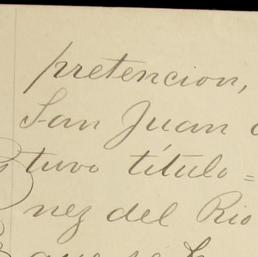 pretencion,
San Juan
tuvo título =
nez del Rio
que se